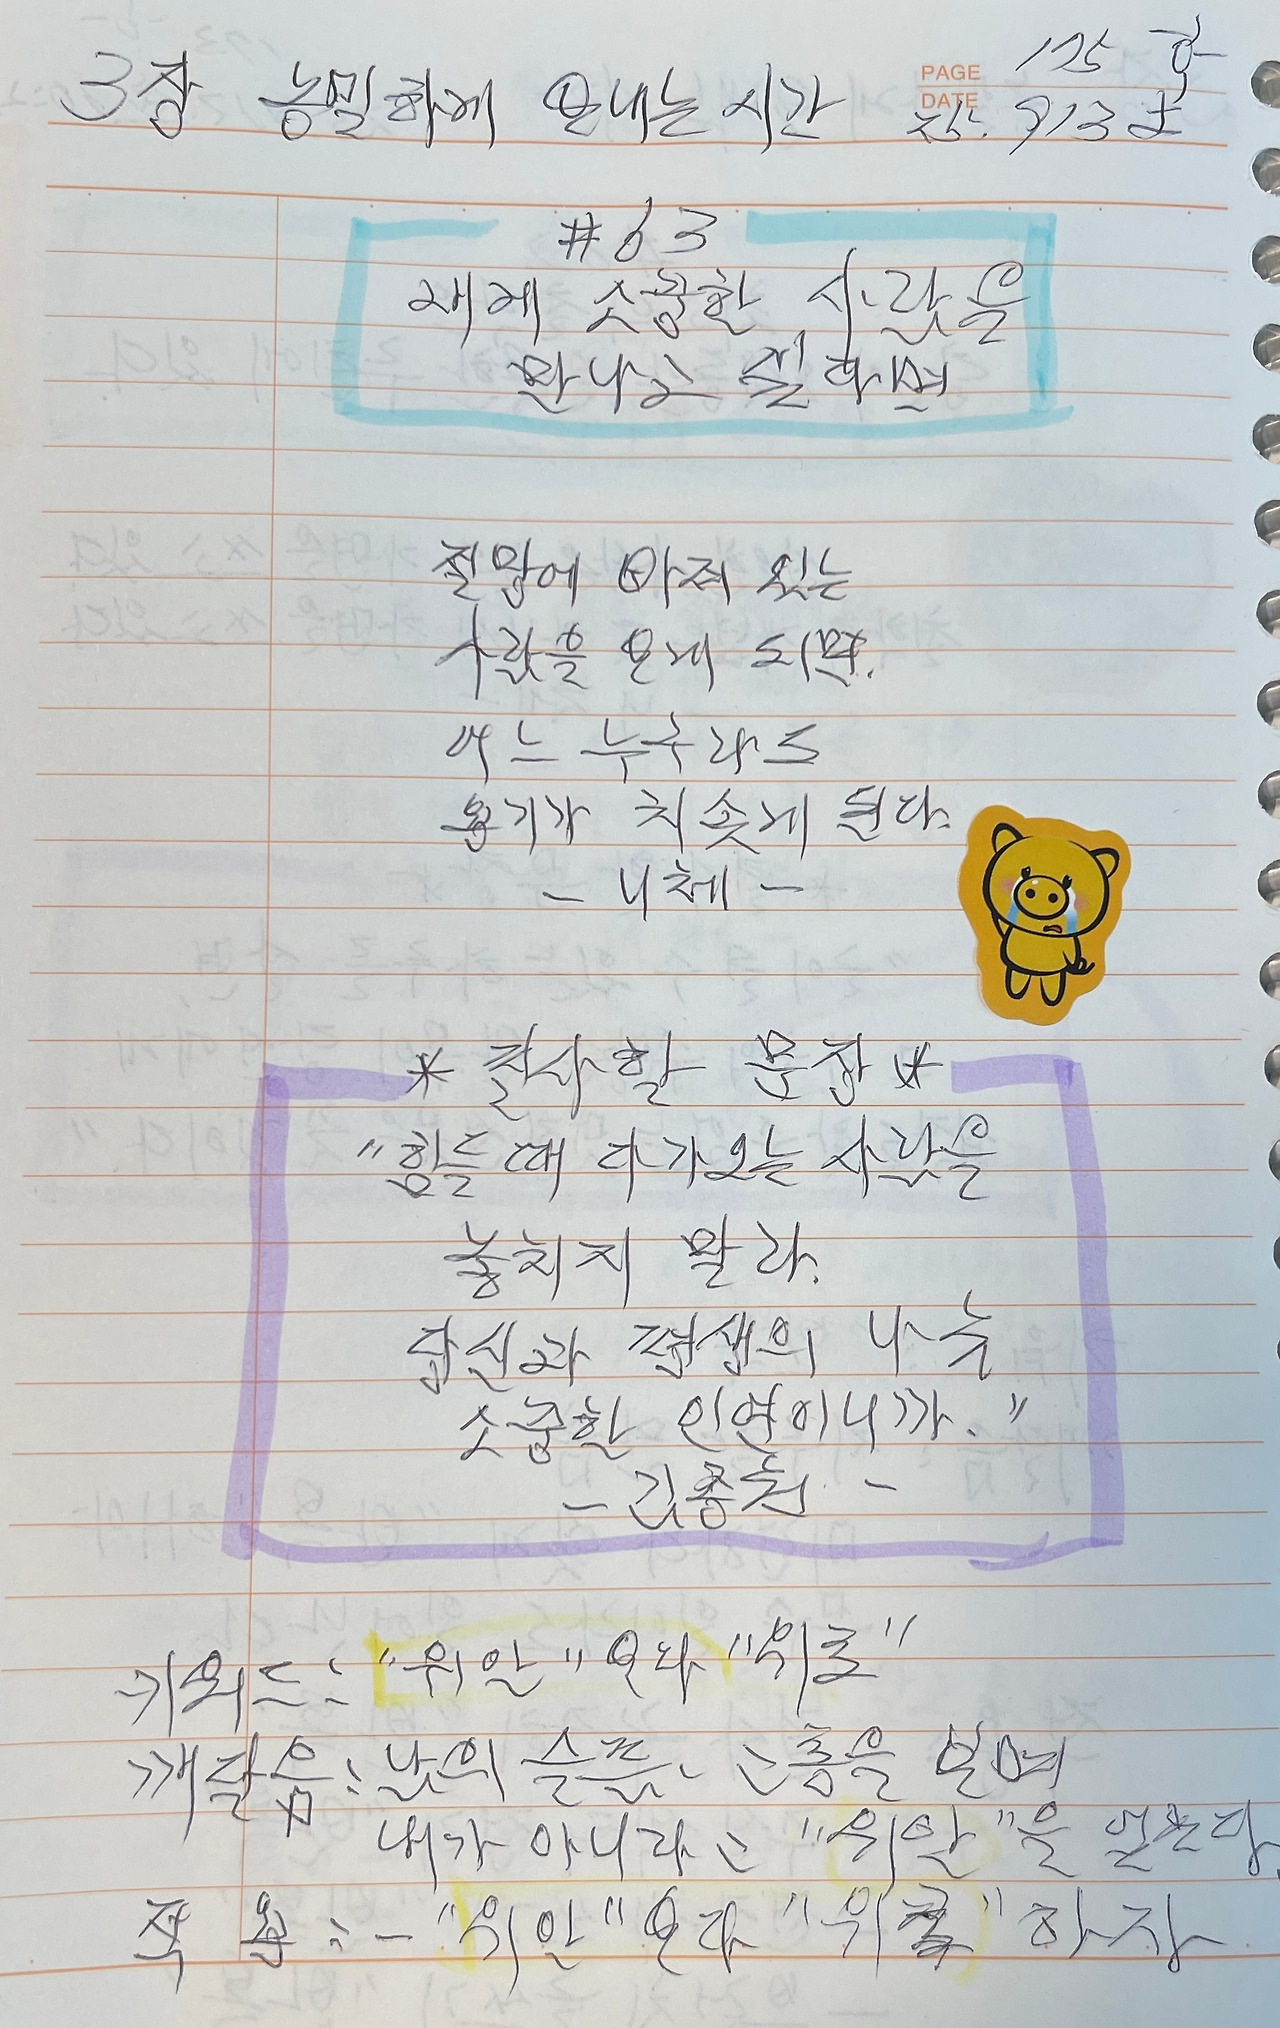 3장 농밀하게 보내는 시간
PAGE 175
DATE 913
#63
내게 소중한 사람을
만나고 싶다면
절망에 빠져 있는
사람을 보게 되면.
어느 누구라도
용기가 치솟게 된다.
- 니체 -
* 필사할 문장 *
"힘들 때 다가오는 사람을
놓치지 말라.
당신과 평생의 나눌
소중한 인연이니까."
- 김종원 -
키워드 : "위안"보다 "위로"
깨달음 : 남의 슬픔, 고통을 보며
내가 아니라고 "위안"을 얻는다.
적 용 : - "위안"보다 "위로" 하자